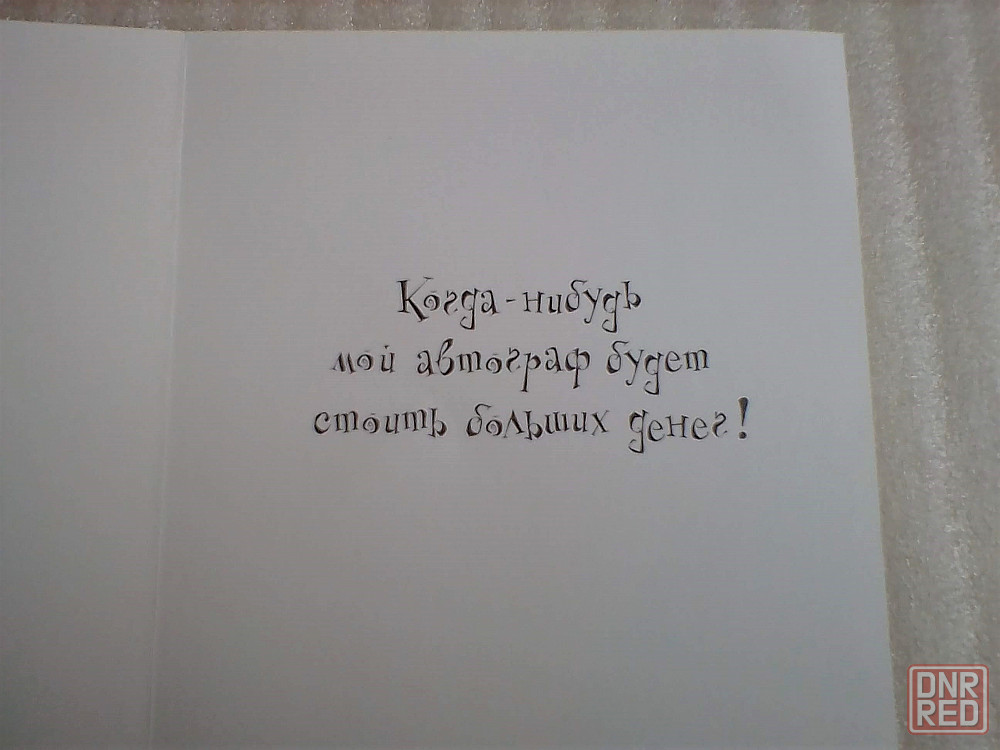 Когда-нибудь
мой автограф будет
стоить больших денег!
DNR
RED